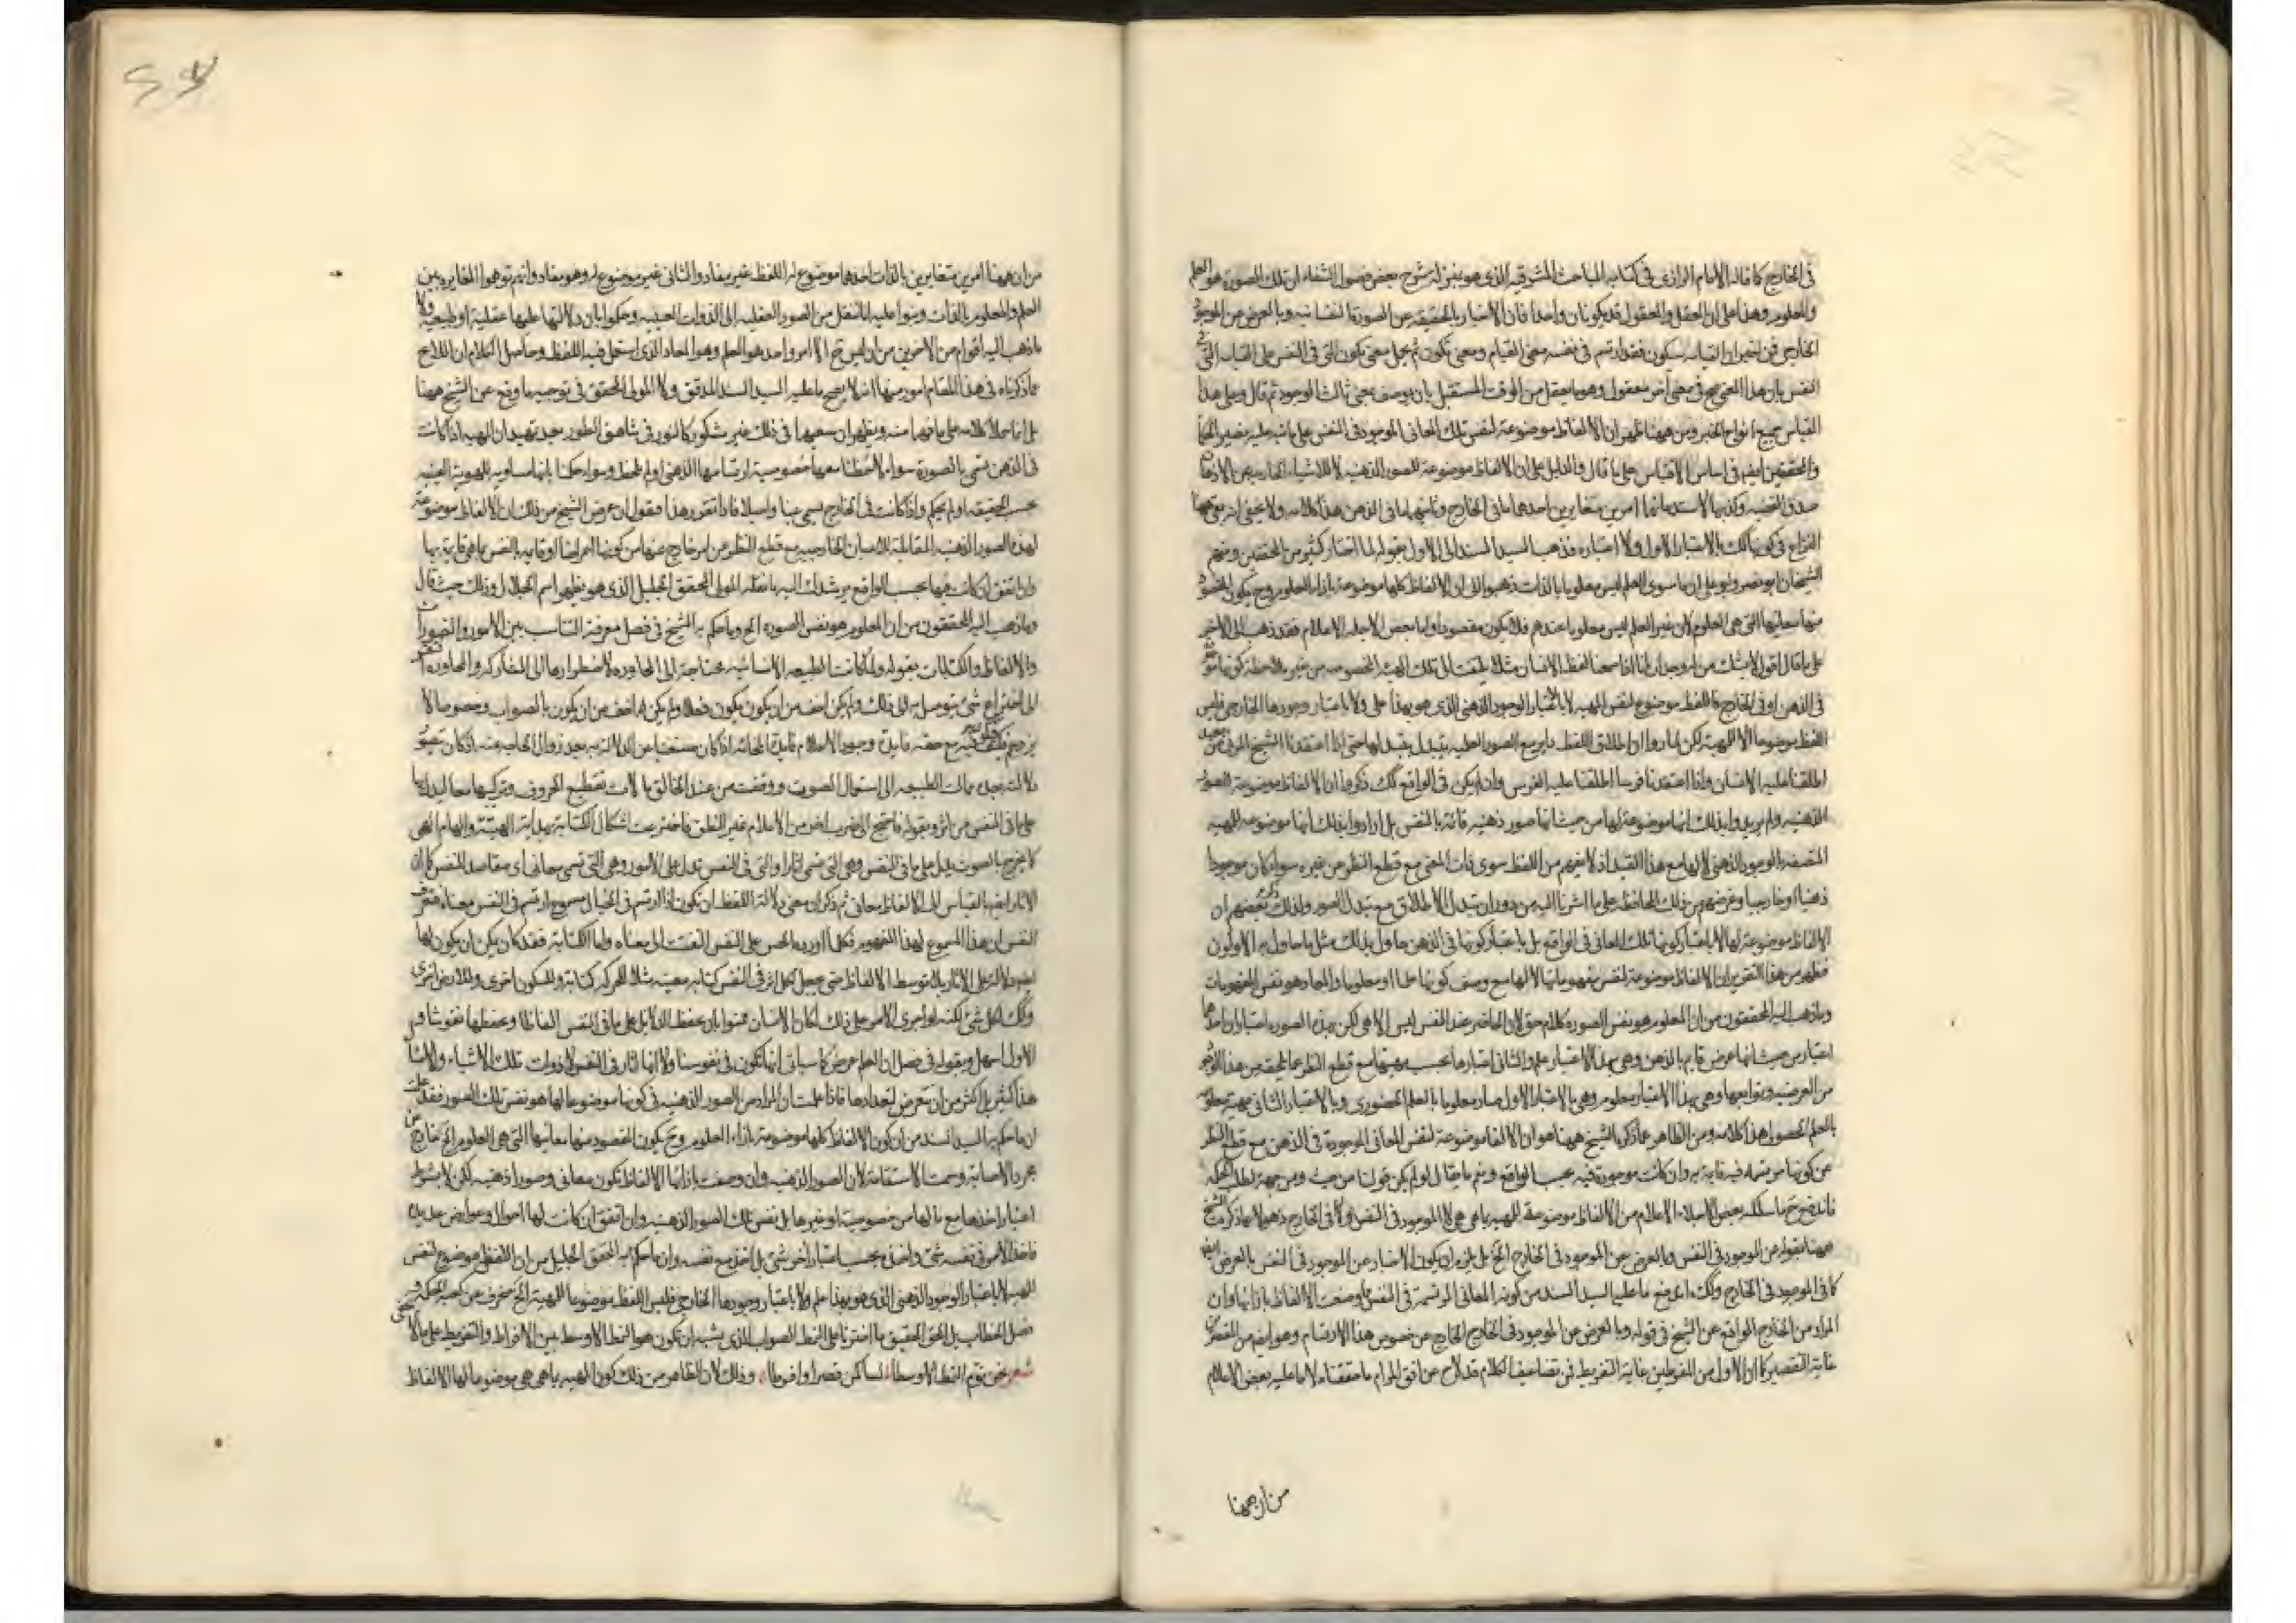 في الخارج كما قال الامام الرازي في كتابه المباحث المشرقيه الذي هو بمنزلة شرح بعض فصول الشفاء ان تلك الصورة هو العلم
والمعلوم وهذا على ان العقل والمعقول قد يكونان واحدا فان الاخبار بالحقيقه عن الصورة النفسانيه وبالعرض عن الموجود
الخارجي فمن اخبر ان القيامه سيكون فقد ارتسم في نفسه معنى القيام ومعنى تكون ثم يحمل معنى تكون التي في النفس على القيامه التي في
النفس بان هذا المعنى صح في معنى آخر معقول وهو ما يعقل من الوقت المستقبل بان يوصف بمعنى ثالث الوجود ثم قال وعلى هذا
القياس جميع انواع الخبر ومن ههنا ظهر ان الالفاظ موضوعة لنفس تلك المعاني الموجود في النفس على ما نبه عليه نصير
والمحققين ايضا في اساس الاقتباس على ما قال والدليل على ان الالفاظ موضوعة للصور الذهنيه لا للاشياء الخارجيه
صدق القضيه وكذبها لاستدعائهما امرين متغايرين احدهما ما في الخارج وثانيهما ما في الذهن هذا كلامه ولا يخفى انه بقي ههنا
النزاع في كونها كك بالاعتبار الاول ولا اعتباره فذهب السيد السند الى الاول بقوله لما اختار كثير من المحققين ومنهم
الشيخان ابو نصر وابو علي ان ما سوى العلم ليس معلوما بالذات ذهبوا الى ان الالفاظ كلها موضوعة بازاء العلوم وح يكون المقصود
منها معانيها التي هي العلوم لان غير العلم ليس معلوما عندهم فلا يكون مقصودا واما بعض الاجله الاعلام فقد ذهب الى الاخير
على ما قال اقول لا شك من ان وجدان انا اذا سمعنا لفظ الانسان مثلا يلتفت الى تلك المهية المخصوصه من غير ملاحظة كونها
في الذهن او في الخارج فاللفظ موضوع لنفس المهيه لا باعتبار الوجود الذهني الذي هو بهذا علم ولا باعتبار وجودها الخارجي فليس
اللفظ موضوعا الا للمهية لكن لما راوا ان اطلاق اللفظ دائر مع الصور العلميه يتبدل بتبدلها حتى اذا اعتقدنا الشبح المرئي من بعيد
اطلقنا عليه الانسان واذا اعتقدنا فرسا اطلقنا عليه الفرس وان لم يكن في الواقع كك ذكروا ان الالفاظ موضوعة للصور
الذهنيه ولم يريدوا بذلك انها موضوعة لها من حيث انها صور ذهنيه قائمة بالنفس بل ارادوا بذلك انها موضوعه للمهيه
المتصفه بالوجود الذهني لا لها مع هذا القيد اذ لا يفهم من اللفظ سوى ذات المعنى مع قطع النظر عن غيره سواء كان موجودا
ذهنيا او خارجيا وغرضهم من ذلك المحافظه على ما اشرنا اليه من دوران تبدل الاطلاق مع تبدل الصور ولذلك ذكر بعضهم ان
الالفاظ موضوعة لها لا باعتبار كونها تلك المعاني في الواقع بل باعتبار كونها في الذهن حاول بذلك مثل ما حاول به الاولون
فظهر من هذا التقرير ان الالفاظ موضوعة لنفس مفهوماتها لا لها مع وصف كونها علما او معلوما والمعاد هو نفس المفهومات
وما ذهب اليه المحققون من ان المعلوم هو نفس الصوره كلام حق لان الحاضر عند النفس ليس الا هي لكن بهذه الصوره اعتباران احدهما
اعتبار من حيث انها عرض قايم بالذهن وهي بهذا الاعتبار علم والثاني اعتبارها بحسب مهيتها مع قطع النظر عما يلحقه من هذا الوجه
من العرضيه وتوابعها وهي بهذا الاعتبار معلوم وهي بالاعتبار الاول صار معلوما بالعلم الحضوري وبالاعتبار الثاني مهية معلومة
بالعلم الحصولي هذا كلامه ومن الظاهر مما ذكره الشيخ ههنا هو ان الالفاظ موضوعة لنفس المعاني الموجودة في الذهن مع قطع النظر
عن كونها مرتسمه فيه قايمة به وان كانت موجودة فيه بحسب الواقع ونعم ما يقال لولم يكن قولنا من حيث ومن جهة لبطلت الحكمه
فاندفع ح ما سلكه بعض الاجلاء الاعلام من الالفاظ موضوعة للمهيه بما هي هي لا الموجود في النفس ولا في الخارج ذهولا بما ذكره الشيخ
ههنا بقوله عن الموجود في النفس وبالعرض عن الموجود في الخارج الخ بل يلزم ان يكون الاخبار عن الموجود في النفس بالعرض ايضا
كما في الموجود في الخارج وكك اندفع ما عليه السيد السند من كونه المعاني المرتسمة في النفس وصفت الالفاظ بازائها وان
المراد من الخارج الواقع عن الشيخ في قوله وبالعرض عن الموجود في الخارج الخارج عن خصوص هذا الارتسام وهو ايضا من المقصرين
غاية التقصير كما ان الاول من المفرطين غاية التفريط فمن تضاعيف الكلام قد لاح عن افق المرام ما حققناه لا ما عليه بعض الاعلام
من ان ههنا
من ان ههنا امرين متغايرين بالذات احدهما موضوع له اللفظ غير مفاد والثاني غير موضوع له وهو مفاد وانهم توهموا المغايرة بين
العلم والمعلوم بالذات وبنوا عليه انا ننتقل من الصور العقليه الى الذوات العينيه وحكموا بان دلالتها عليها عقلية او طبيعية ولا
ما ذهب اليه اقوام من الآخرين من ان ليس ح الا امر واحد هو العلم وهو المعاد الذي استعمل فيه اللفظ وحاصل الكلام ان اللايح
مما ذكرناه في هذا المقام امور منها انه لا يصح ما عليه السيد السند المدقق ولا المولى المحقق في توجيه ما وقع عن الشيخ ههنا
بل انما حملا كلامه على ما فهما منه ويظهر ان سعيهما في ذلك غير مشكور كالنور في شاهق الطور بعد تمهيد ان المهيه اذا كانت
في الذهن تسمى بالصورة سواء لاحظنا معها خصوصية ارتسامها الذهني او لم نلحظ وسواء حكمنا بانها مساويه للهوية العينيه
بحسب الحقيقه او لم يحكم واذا كانت في الخارج يسمى عينا واصيلا فاذا تقرر هذا فنقول ان غرض الشيخ من ذلك ان الالفاظ موضوعة
لهذه الصور الذهنيه المقابلة للاعيان الخارجيه مع قطع النظر عن امر خارج عنها من كونها اعراضا او قايمه بالنفس بما هي قايمة بها
وان اتفق ان كانت فيها بحسب الواقع يرشدك اليه ما نقله المولى المحقق الجليل الذي هو مظهر اسم الجلال وذلك حيث قال
وما ذهب اليه المحققون من ان المعلوم هو نفس الصوره الخ وما حكم به الشيخ في فصل معرفة التناسب بين الامور والتصورات
والالفاظ والكتابات بقوله ولما كانت الطبيعه الانسانيه محتاجة الى المحاوره لاضطرارها الى المشاركه والمجاورة انبعثت
الى اختراع شئ يتوصل به الى ذلك ولم يكن اخف من ان يكون فعلا ولم يكن اخف من ان يكون بالصواب وخصوصا لا
دلالته بعده مالت الطبيعه الى استعمال الصوت ووفقت من عند الخالق بالات تقطيع الحروف وتركيبها معا ليدل بها
على ما في النفس من اثر وبقوله فاحتيج الى ضرب اخر من الاعلام غير النطق فاخترعت اشكال الكتابة بهداية الهية والهام الهي
كما يخرج بالصوت يدل على ما في النفس وهي التي تسمى اثارا والتي في النفس تدل على الامور وهي التي تسمى معاني اي مقاصد للنفس كما ان
الاثار ايضا بالقياس الى الالفاظ معاني ثم ذكر ان معنى دلالة اللفظ ان يكون اذا ارتسم في الخيال مسموع ارتسم في النفس معناه فتعرف
النفس ان هذا المسموع لهذا المفهوم فكلما اورده الحس على النفس التفتت الى معناه واما الكتابة فقد كان يمكن ان يكون لها
دلالة على الاثار بلا توسط الالفاظ حتى يجعل لكل اثر في النفس كتابة معينه مثلا للحركه كتابة وللسكون اخرى وللارض اخرى
وكك لكل شئ لكنه لو اجرى الامر على ذلك لكان الانسان ممنوا بان يحفظ الدلايل على ما في النفس الفاظا ويحفظها نقوشا
الاول اسهل وبقوله في فصل ان العلم عرض كما سياتي انها تكون في نفوسنا ولانها اثار في النفس لا ذوات تلك الاشياء
هذا كثير بل اكثر من ان نعرض لتعدادها فاذا علمت ان المراد من الصور الذهنيه في كونها موضوعا لها هو نفس تلك الصور فقد علمت
ان ما حكم به السيد السند من ان كون الالفاظ كلها موضوعة بازاء العلوم وح يكون المقصود منها معانيها التي هي العلوم الخ خارج عن
مجرد الاصابة وسمت الاستقامة لان الصور الذهنيه وان وضعت بازائها الالفاظ تكون معاني وصورا ذهنيه لكن لا بشرط
اعتبار اخذها مع ما لها من خصوصية او غيرها بل نفس تلك الصور الذهنيه وان اتفق ان كانت لها احوال وعوارض عديدة
فاخذ الامر في نفسه شئ واخذه بحسب اعتبار آخر شئ بل اخذه مع نفسه وان ما حكم به المحقق الجليل من ان اللفظ موضوع لنفس
المهيه لا باعتبار الوجود الذهني الذي هو بهذا علم ولا باعتبار وجودها الخارجي فليس اللفظ موضوعا للمهية الخ منحرف عن كعبة الحكمة و
فصل الخطاب بل الحق الحقيق ما اخترناه على النمط الصواب الذي يشبه ان يكون هو النمط الاوسط بين الافراط والتفريط على ما لا يخفى
شعر نحن نؤم النمط الاوسطا لسنا كمن قصر او افرطا وذلك لان الظاهر من ذلك كون المهيه بما هي هي موضوعا لها الالفاظ